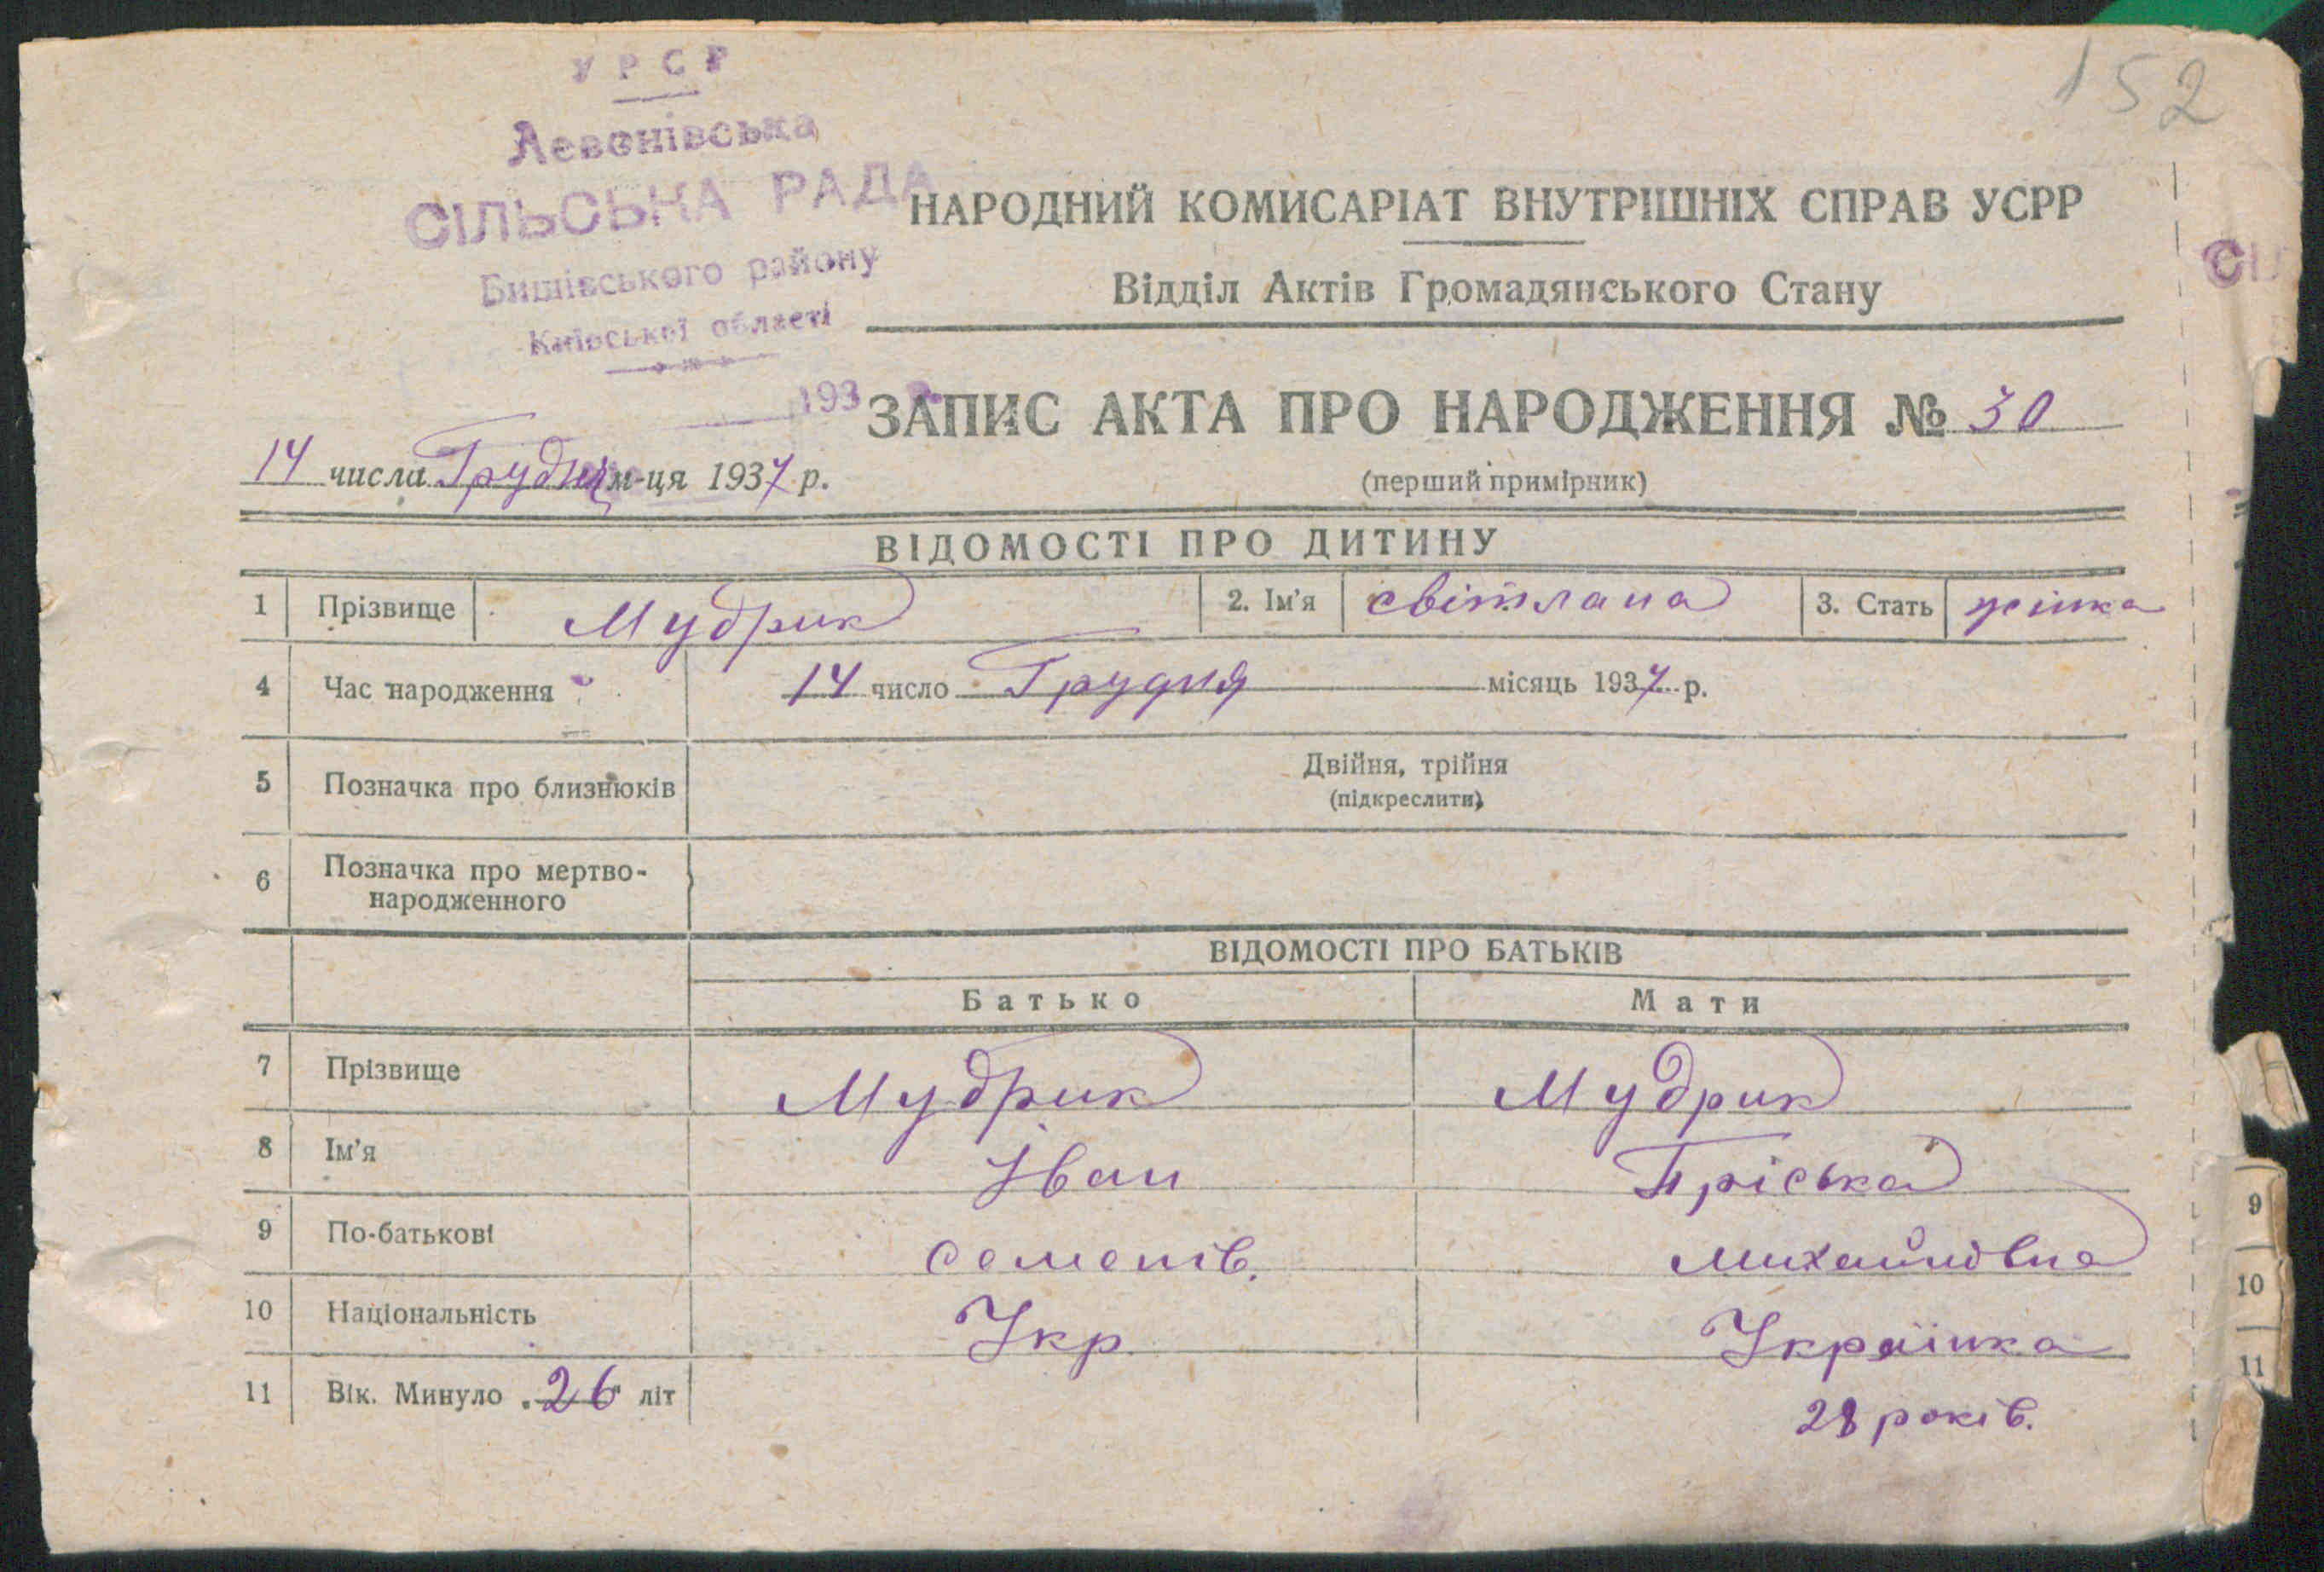 152
УРСР
Левонівська
СІЛЬСЬКА РАДА
Бишівського району
Київської області
193
НАРОДНИЙ КОМИСАРІАТ ВНУТРІШНІХ СПРАВ УСРР
Відділ Актів Громадянського Стану
ЗАПИС АКТА ПРО НАРОДЖЕННЯ № 30
14 числа Грудня м-ця 1937 р.
(перший примірник)
ВІДОМОСТІ ПРО ДИТИНУ
1 Прізвище Мудрик 2. Ім'я світлана 3. Стать жінка
4 Час народження 14 число Грудня місяць 1937 р.
5 Позначка про близнюків Двійня, трійня
(підкреслити)
6 Позначка про мертво-
народженного
ВІДОМОСТІ ПРО БАТЬКІВ
Батько Мати
7 Прізвище Мудрик Мудрик
8 Ім'я Іван Пріська
9 По-батькові семенів. михайловна
10 Національність Укр. Українка
11 Вік. Минуло „26" літ 28 років.
СІ
9
10
11